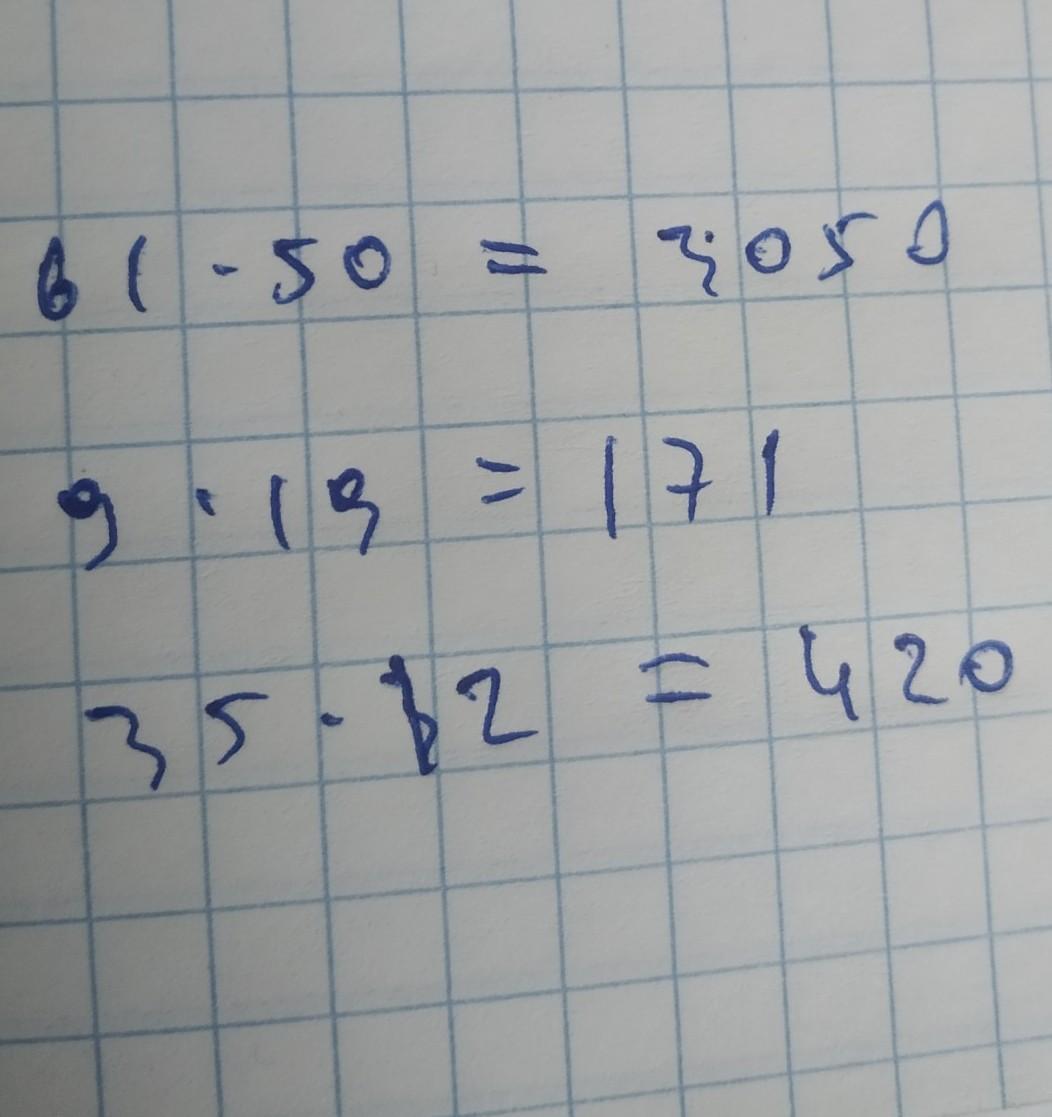 61 · 50 = 3050
9 · 19 = 171
35 · 12 = 420